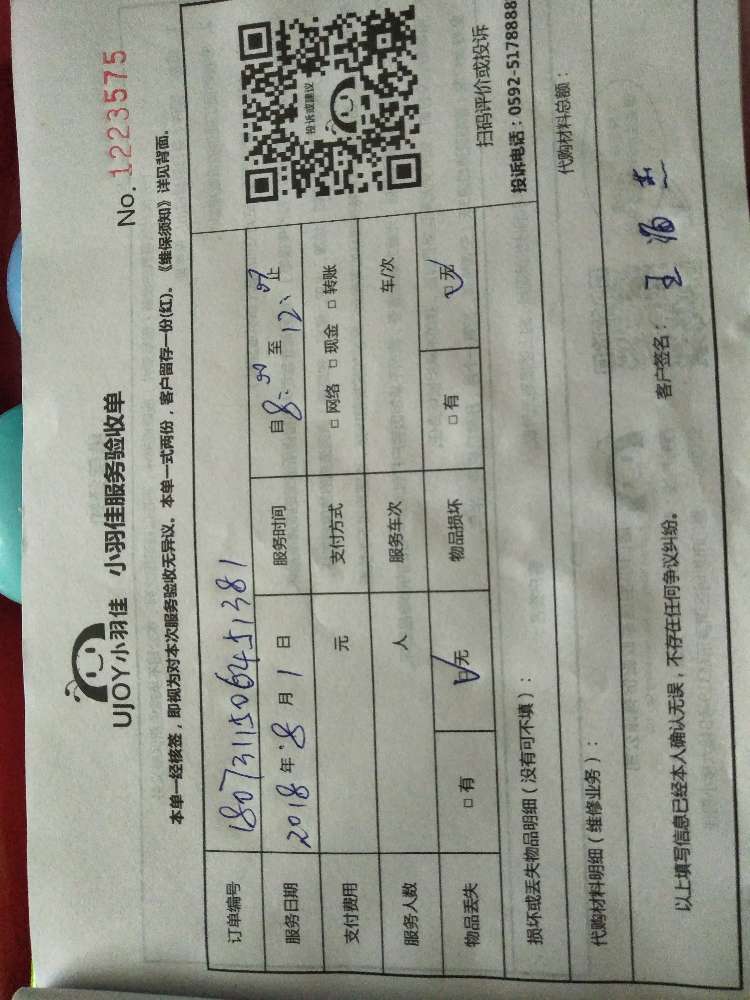 UJOY小羽佳 小羽佳服务验收单
No. 1223575
本单一经核签，即视为对本次服务验收无异议。本单一式两份，客户留存一份(红)。《维保须知》详见背面。
订单编号 1807311506451381
服务日期 2018年8月1日 服务时间 自8:00至12:00止
支付费用 元 支付方式 □网络 □现金 □转账
服务人数 人 服务车次 车/次
物品丢失 □有 □无 物品损坏 □有 □无
投诉或建议
扫码评价或投诉
投诉电话：0592-5178888
损坏或丢失物品明细（没有可不填）：
代购材料明细（维修业务）： 代购材料总额：
以上填写信息已经本人确认无误，不存在任何争议纠纷。 客户签名：王